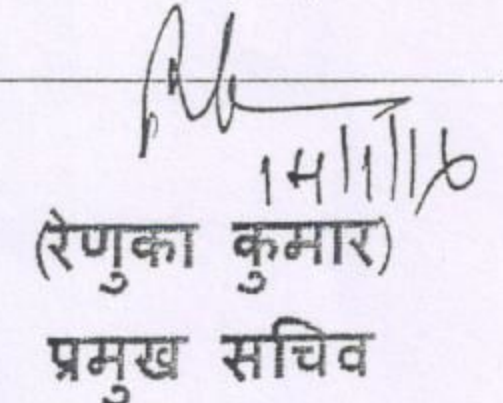 14/1/16
(रेणुका कुमार)
प्रमुख सचिव